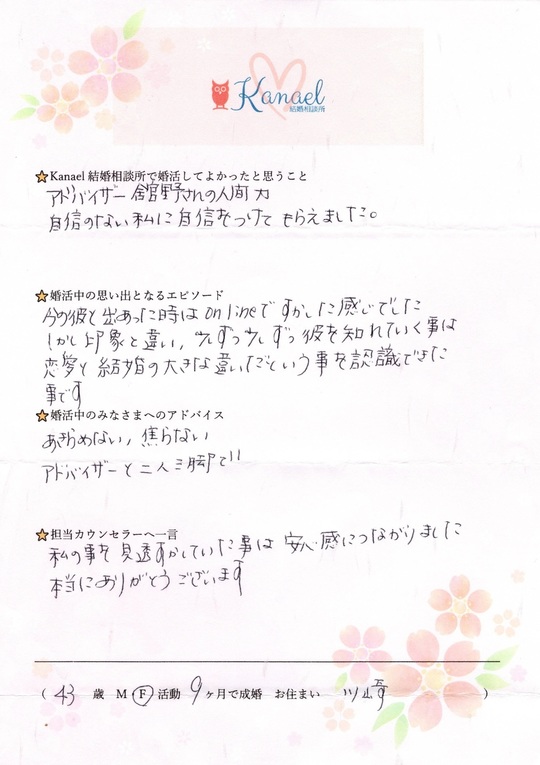 Kanael
結婚相談所
Kanael 結婚相談所で婚活してよかったと思うこと
アドバイザー 舘野さんの人間力
自信のない私に自信をつけてもらえました。
婚活中の思い出となるエピソード
今の彼と出あった時は on lineで すかした感じでした
しかし印象と違い, 少しずつ少しずつ彼を知れていく事は
恋愛と結婚の大きな違いだという事を認識できた
事です
婚活中のみなさまへのアドバイス
あきらめない, 焦らない
アドバイザーと二人三脚で!!
担当カウンセラーへ一言
私の事を見透かしていた事は 安心感につながりました
本当にありがとうございます
( 43 歳 M・F 活動 9 ヶ月で成婚 お住まい 川崎 )